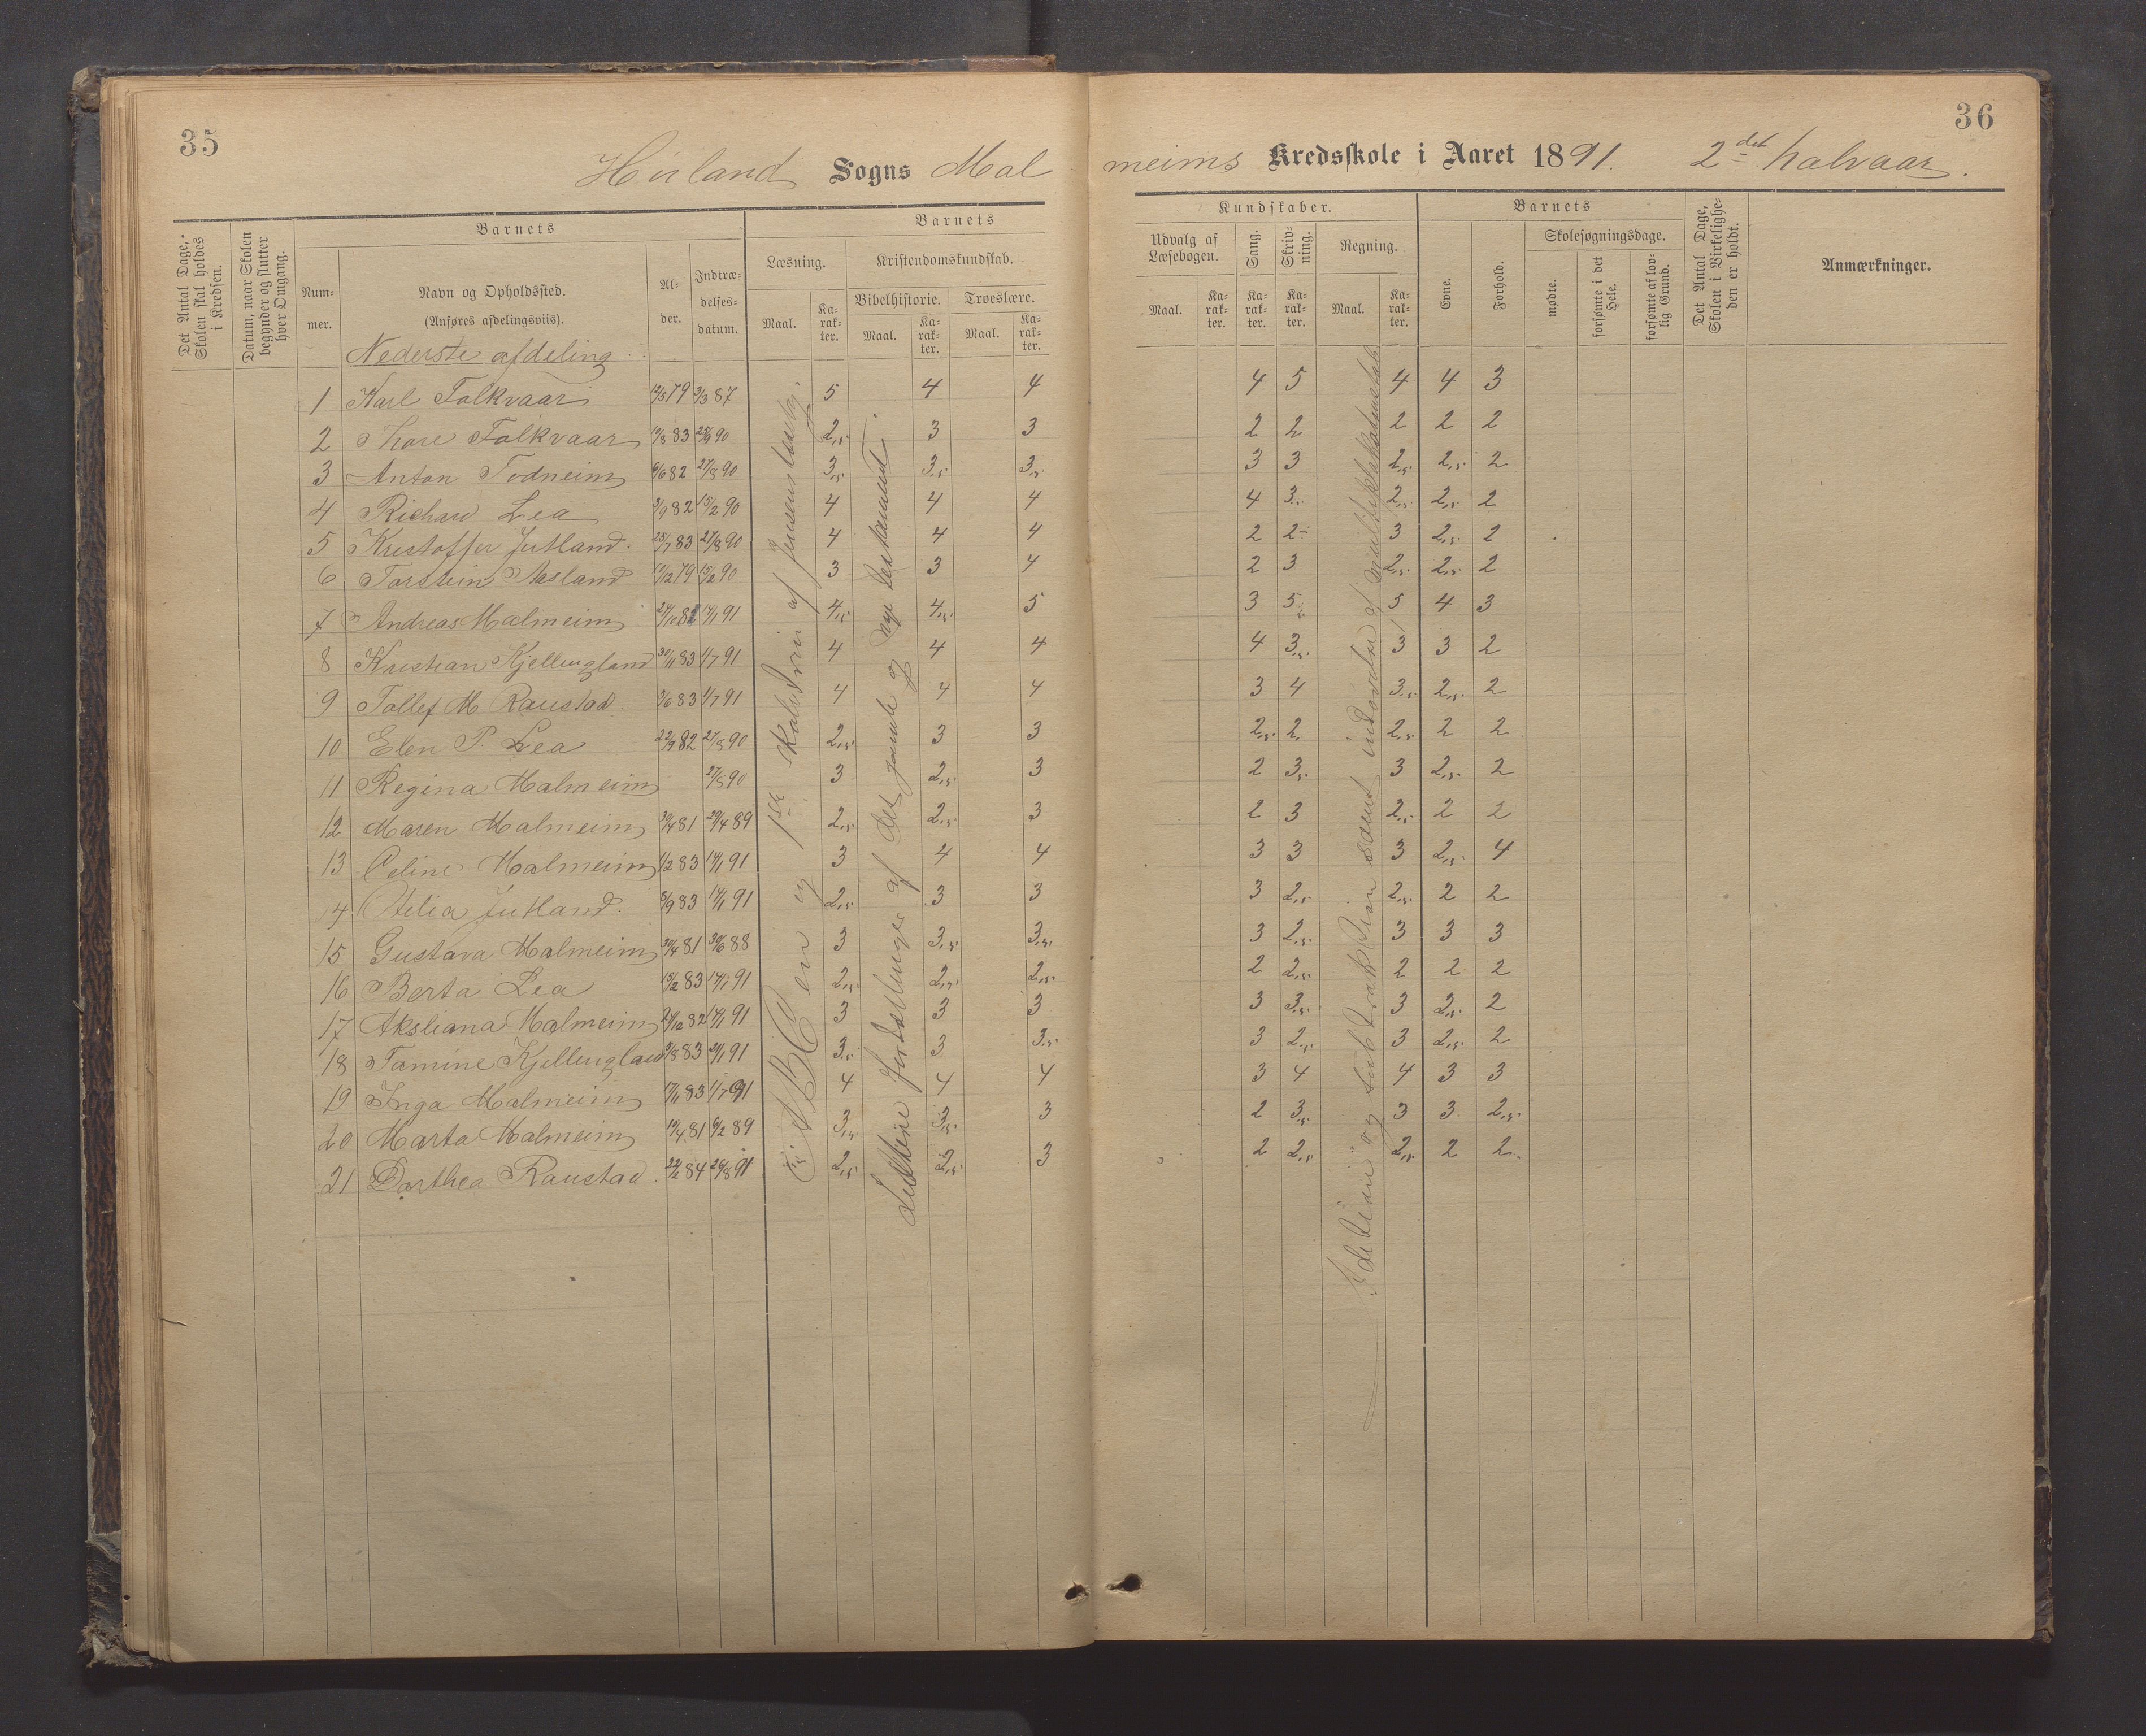 35
36
Høiland Sogns Mal
meims Kredsskole i Aaret 1891. 2det halvaar.
Det Antal Dage, Skolen skal holdes i Kredsen.
Datum, naar Skolen begynder og slutter hver Omgang.
Barnets
Nummer.
Navn og Opholdssted. (Anføres afdelingsviis).
Alder.
Indtrædelses-datum.
Barnets
Læsning.
Maal.
Karakter.
Kristendomskundskab.
Bibelhistorie.
Maal.
Karakter.
Troeslære.
Maal.
Karakter.
Kundskaber.
Udvalg af Læsebogen.
Maal.
Karakter.
Sang.
Karakter.
Skrivning.
Karakter.
Regning.
Maal.
Karakter.
Barnets
Evne.
Forhold.
Skolesøgningsdage.
mødte.
forsømte i det Hele.
forsømte af lovlig Grund.
Det Antal Dage, Skolen i Virkeligheden er holdt.
Anmærkninger.
Nederste afdeling
1 Karl Folkvaar 12/5 79 3/3 87 5 4 4 4 5 4 4 3
2 Thore Folkvaar 83 90 2,5 3 3 2 2 2 2 2
3 Anton Todneim 6/6 82 27/8 90 3,5 3,5 3,5 3 3 2,5 2,5 2
4 Richard Lea 3/9 82 15/2 90 4 4 4 4 3,5 2,5 2,5 2
5 Kristoffer Jutland 25/7 83 27/8 90 4 4 4 2 2 3 2,5 2
6 Torstein Aasland 79 15/2 90 3 3 4 2 3 2,5 2,5 2
7 Andreas Malmeim 82 14/1 91 4,5 4,5 5 3 5 5 4 3
8 Kristian Kjellingland 30/11 83 1/7 91 4 4 4 4 3,5 3 3 2
9 Tollef M Raustad 3/6 83 1/7 91 4 4 4 3 4 3,5 2,5 2
10 Elen P. Lea 22/9 82 27/8 90 2,5 3 3 2,5 2 2,5 2 2
11 Regina Malmeim 27/8 90 3 2,5 3 2 3,5 3 2,5 2
12 Maren Malmeim 30/4 81 29/4 89 2,5 2,5 3 2 3 2,5 2 2
13 Celine Malmeim 1/2 83 14/1 91 3 4 4 3 3 3 2,5 4
14 Jutland 83 14/1 91 2,5 3 3 3 2,5 2,5 2 2
15 Gustava Malmeim 30/4 81 30/6 88 3 3,5 3,5 3 2,5 3 3 3
16 Berta Lea 15/2 83 14/1 91 2,5 2,5 2,5 2 2,5 2 2 2
17 Aksliana Malmeim 82 14/1 91 3 3 3 3 3,5 3 2,5 2
18 Tamine Kjellingland 83 91 3,5 3 3,5 3 2,5 3 2,5 2
19 Inga Malmeim 17/11 83 1/7 91 4 4 4 3 4 4 3 3
20 Marta Malmeim 81 6/2 89 3,5 3,5 3 2 3,5 3 3 2,5
21 Dorthea Raustad 22/2 84 26/8 91 2,5 2,5 3 2 2,5 2,5 2 2
ABC en og 1ste af Jensens læsebog.
fortællinger af det gamle og nye testamente.
Addition og subtraktion samt indøvelse af multiplikationstab